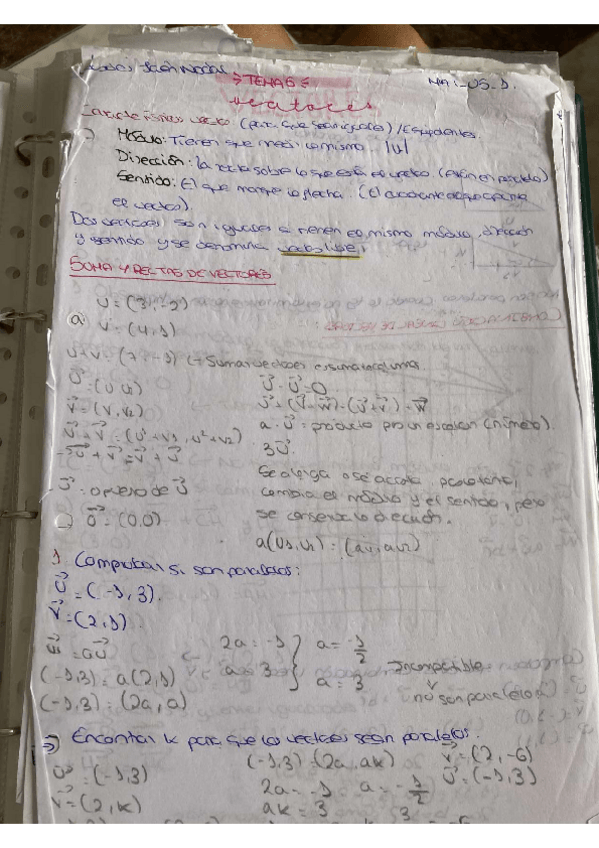 → TEMA 5:
vectores
Características vector (para que sean iguales) / Equipolentes.
Módulo: Tienen que medir lo mismo. |u|
Dirección: La recta sobre la que está el vector (estén en paralelo)
Sentido: El que marque la flecha. (El cuadrante al que apunta
el vector).
Dos vectores son iguales si tienen el mismo módulo, dirección
y sentido y se denomina vector libre.
SUMA Y RECTAS DE VECTORES
u⃗ = (3, -2)
v⃗ = (4, 1)
u+v = (7, -1) ← Suma vectores es suma
u⃗ = (u, u2)
v⃗ = (v, v2)
u⃗ + v⃗ = (u¹+v1, u²+v2)
u⃗ + v⃗ = v⃗ + u⃗
u⃗ : opuesto de u⃗
0⃗ = (0,0)
u⃗ - u⃗ = 0
u⃗ + (v⃗ + w⃗) = (u⃗ + v⃗) + w⃗
a · u⃗ = producto por un escalar (número).
3u⃗.
Se alarga o se acorta,
cambia el módulo y el sentido, pero
se conserva la dirección.
a(u1, u2) = (au, au2)
1 Comprobar si son paralelos:
u⃗ = (-1, 3).
v⃗ = (2, 1)
u⃗ = au⃗
(-1,3) = a(2,1)
(-1,3) = (2a, a)
2a = -1 } a = -1/2
a = 3 } a = 3
Incompatible
(no son paralelos)
Encontrar k para que los vectores sean paralelos.
u⃗ = (-1,3)
v⃗ = (2, k)
(-1,3) = (2a, ak)
2a = -1 a = -1/2
ak = 3
v⃗ = (2, -6)
u⃗ = (-1, 3)